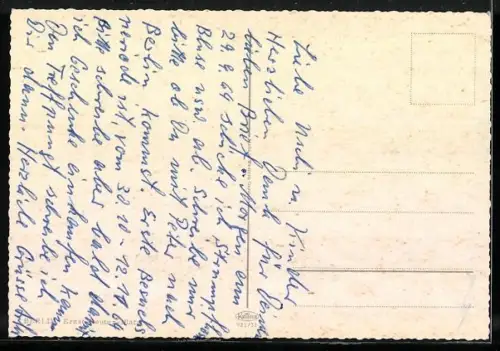 Liebe Uschi u. Kinder
Herzlichen Dank für Deinen
lieben Brief. Morgen am
29.9.64 schicke ich Strümpfe,
Bluse usw. ab. Schreibe mir
bitte ob Du mit Peter nach
Berlin kommst. Erste Besuchs
ist vom 30.10 - 12.11.64
Bitte schreibe aber bald damit
ich Geschenke einkaufen kann
Den Treffpunkt schreibe ich
Dir dann. Herzliche Grüsse
BERLIN